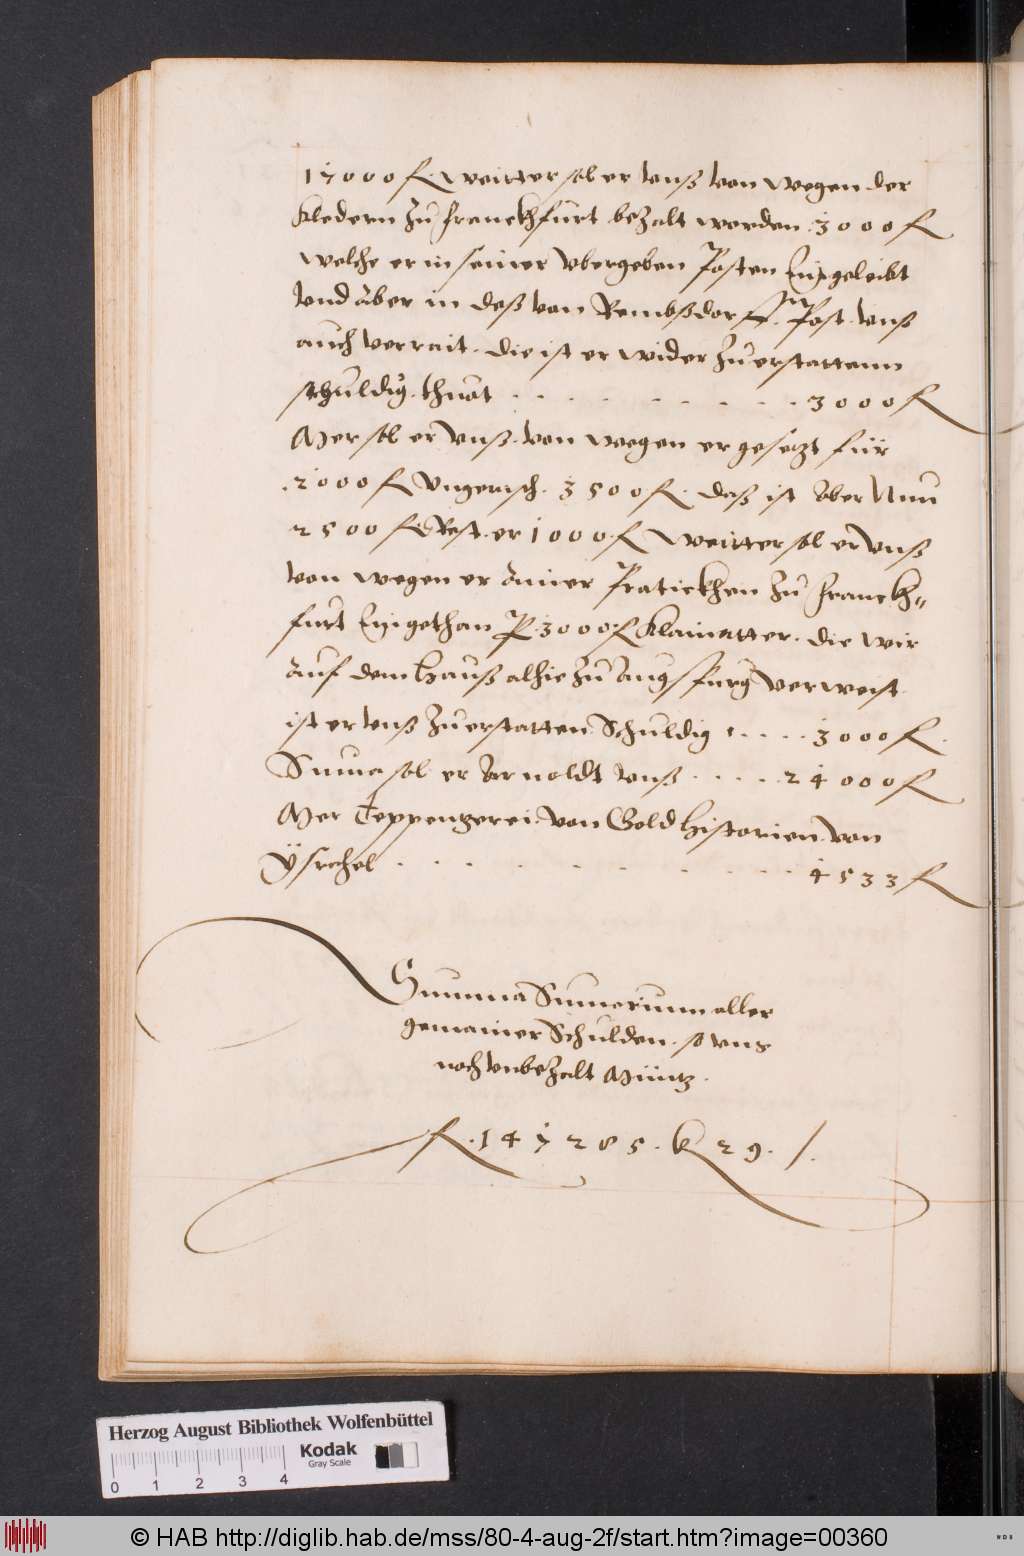 17000 fl. Weitter sol er vnß von wegen der
Kledern zu Franckhfurt bezalt werden 3000 fl
welche er in seiner vbergeben Posten Eingeleibt
vnd aber in deß von Rembßdorff Post vnß
auch verrait. die ist er wider zu erstattenn
schuldig. thuat . . . . . . . . . 3000 fl
Mer sol er vnß von wegen er gesetzt für
2000 fl Vngerisch. 3500 fl. daß ist aber Nuu
2500 fl Rest. er 1000 fl Weitter sol er vnß
von wegen er ainer Pratickhen zu Franckh„
furt Eingethan P 3000 fl Klainatter. die wir
auf dem Hauß alhie zu Augspurg verweist
ist er vnß zu erstatten Schuldig . . . . . 3000 fl.
Suma sol er Arnoldt vnß . . . . . 24000 fl
Mer Teppenzerei von Gold Historien von
Ÿsrahel . . . . . . . . . 4533 fl
Summa Sumarum aller
gemainer Schulden. so vns
noch vnbezalt Müntz.
fl. 147285. k 29. /.
Herzog August Bibliothek Wolfenbüttel
Kodak
Gray Scale
0 1 2 3 4
© HAB http://diglib.hab.de/mss/80-4-aug-2f/start.htm?image=00360